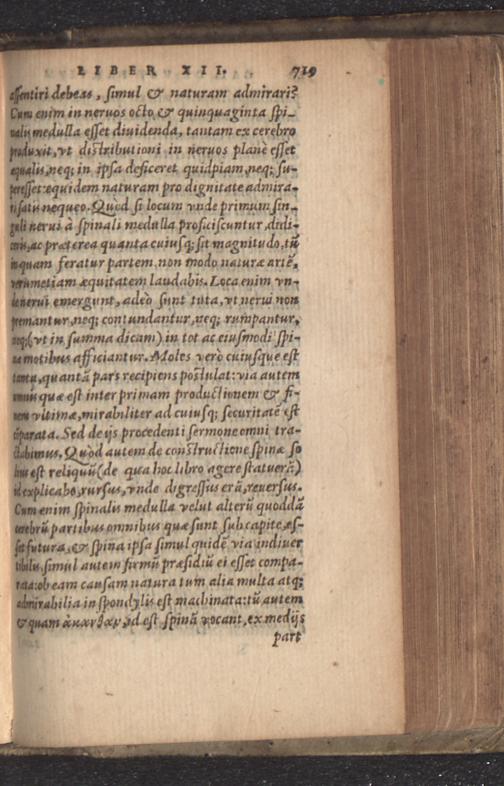 LIBER XII. 719
assentiri debeas, simul & naturam admirari?
Cum enim in neruos octo & quinquaginta spi-
nalis medulla esset diuidenda, tantam ex cerebro
produxit, vt distributioni in neruos planè esset
equalis, neq; in ipsa deficeret quidpiam, neq; su-
peresset: equidem naturam pro dignitate admira-
ri satis nequeo. Quòd si locum vnde primum sin-
guli nerui à spinali medulla proficiscuntur, didi-
ceris, ac præterea quanta cuiusq; sit magnitudo, tũ
in quam feratur partem, non modo naturæ artẽ,
verumetiam æquitatem laudabis. Loca enim vn-
de nerui emergunt, adeò sunt tuta, vt nerui non
premantur, neq; contundantur, neq; rumpantur,
neq; (vt in summa dicam) in tot ac eiusmodi spi-
næ motibus afficiantur. Moles verò cuiusque est
tanta, quantã pars recipiens postulat: via autem
omnis quæ est inter primam productionem & fi-
nem vltimæ, mirabiliter ad cuiusq; securitatẽ est
cõparata. Sed de ijs procedenti sermone omni tra-
ctabimus. Quòd autem de constructione spinæ so
lius est reliquũ (de qua hoc libro agere statuerã)
id explicabo, rursus, vnde digressus erã, reuersus.
Cum enim spinalis medulla velut alterũ quoddã
cerebrũ partibus omnibus quæ sunt sub capite, es-
set futura, & spina ipsa simul quidẽ via indiuer
tibilis, simul autem firmũ præsidiũ ei esset compa-
rata: ob eam causam natura tum alia multa atq;
admirabilia in spondylis est machinata: tũ autem
& quam ἄκανθαν, id est spinã vocant, ex medijs
part